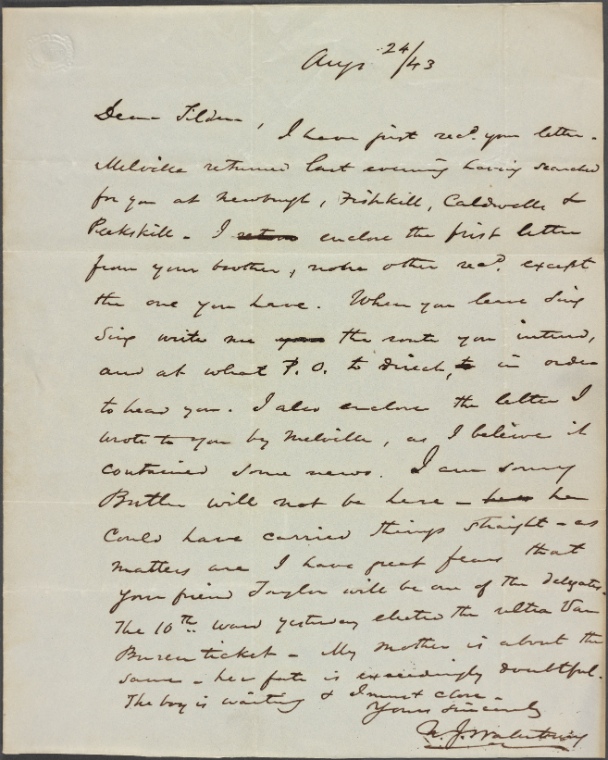 Aug 24/43
Dear Tilden,
I have just recd. your letter.
Melville returned last evening having searched
for you at Newburgh, Fishkill, Caldwells &
Peekskill - I return enclose the first letter
from your brother, no other recd. except
the one you have. When you leave Sing
Sing write me your the route you intend,
and at what P.O. to direct, to in order
to hear you. I also enclose the letter I
wrote to you by Melville, as I believe it
contained some news. I am sorry
Butler will not be here - he
could have carried things straight - as
matters are I have great fears that
your friend Taylor will be one of the delegates.
The 10th ward yesterday elected the ultra Van
Buren ticket - My mother is about the
same - her fate is exceedingly doubtful.
The boy is waiting & I must close -
Yours sincerely
J. Waterbury